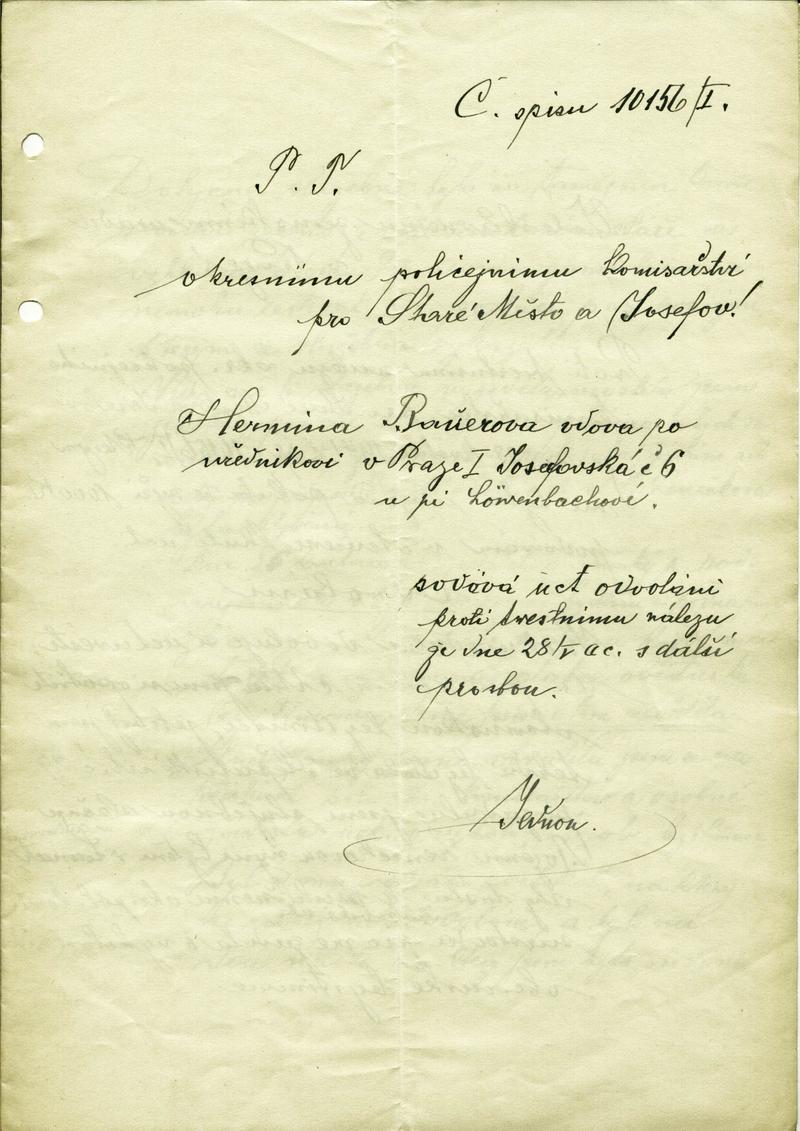 Č. spisu 10156/I.
P. T.
okresnímu policejnimu komisařství
pro Staré Město a Josefov!
Hermina Bauerova vdova po
uřednikovi v Praze I Josefovská č 6
u pí Löwenbachové.
podává uct odvolání
proti trestnimu nálezu
ze dne 28/V a c. s další
prosbou.
Jednou.